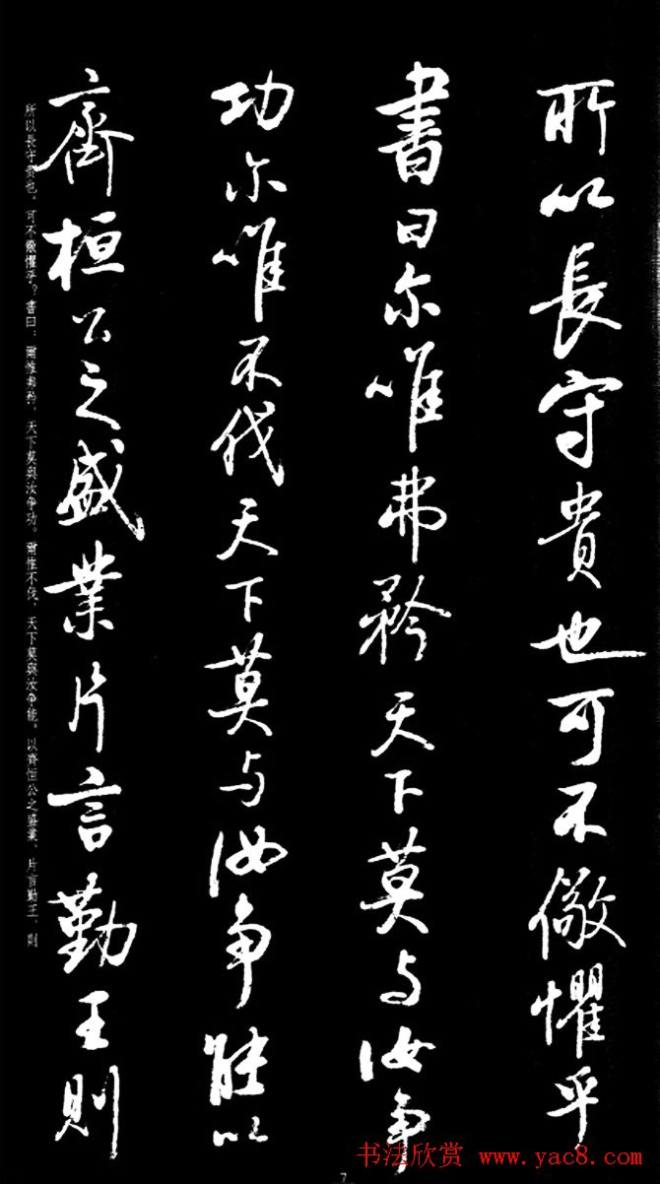 所以長守貴也可不儆懼乎
書曰尔唯弗矜天下莫与汝争
功尔唯不伐天下莫与汝争能以
齊桓公之盛業片言勤王則
所以長守貴也，可不儆懼乎？書曰：爾惟弗矜，天下莫與汝争功。爾惟不伐，天下莫與汝争能。以齊恒公之盛業，片言勤王，則
7
书法欣赏 www.yac8.com